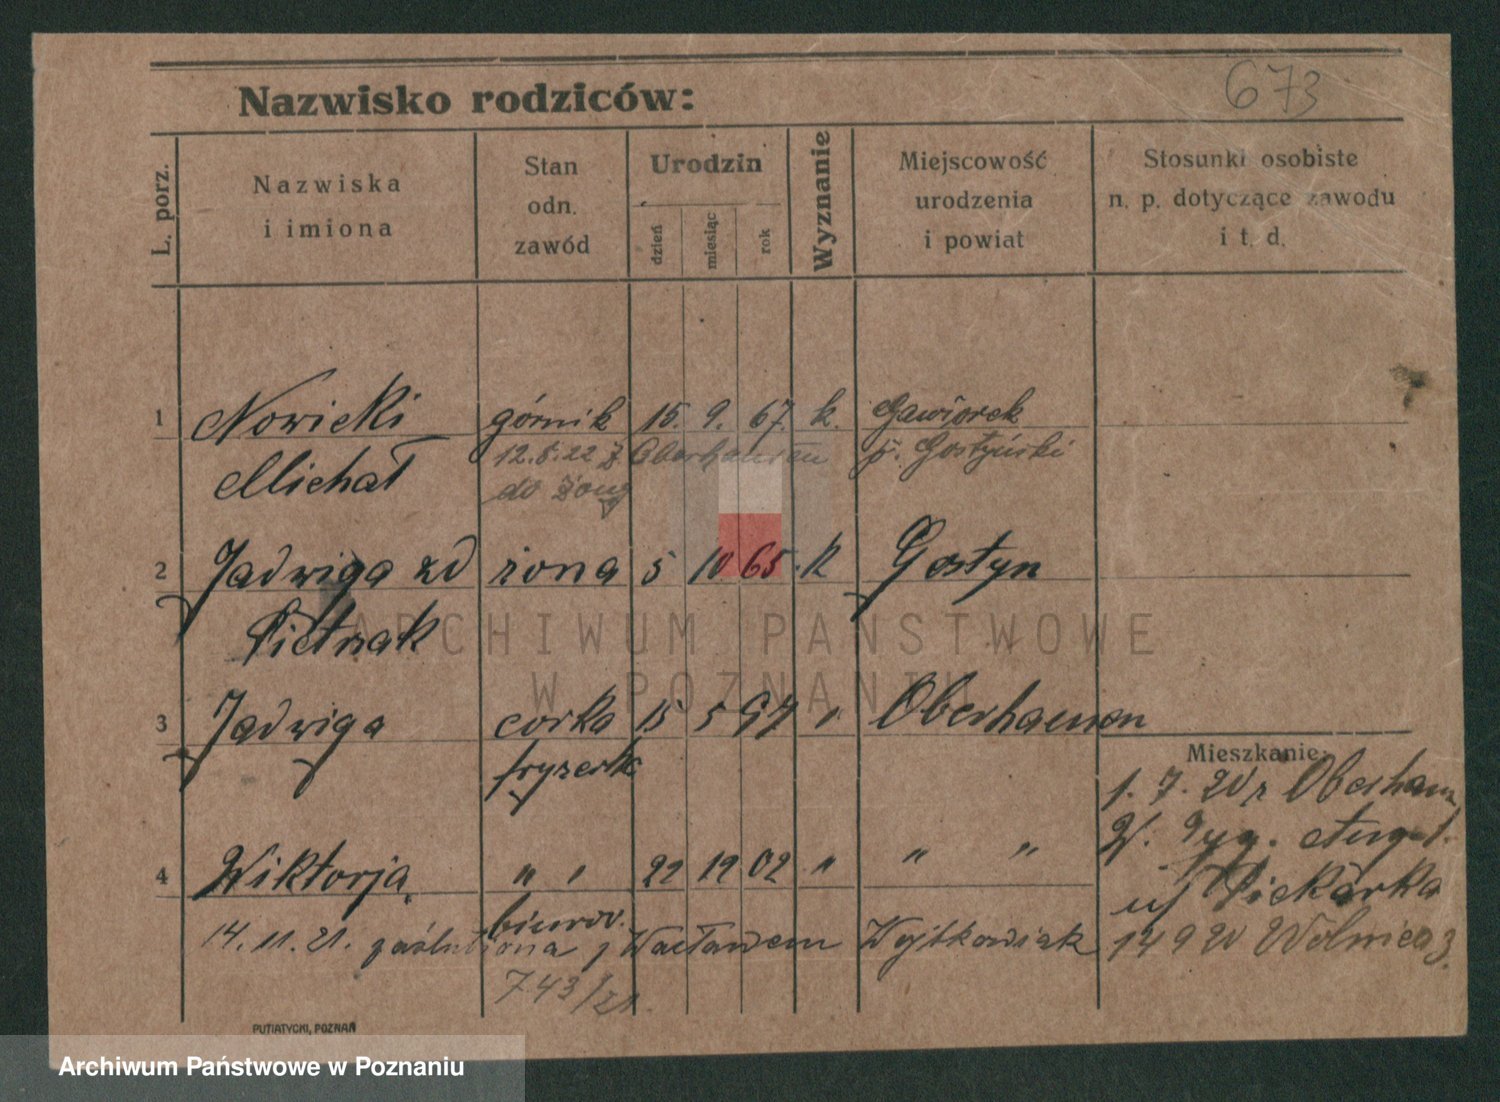 673
Nazwisko rodziców:
L. porz. Nazwiska i imiona Stan odn. zawód Urodzin dzień miesiąc rok Wyznanie Miejscowość urodzenia i powiat Stosunki osobiste n. p. dotyczące zawodu i t. d.
1 Nowicki górnik 15. 9. 67. k. Gawiorek
Michał 12.8.22 z Oberhausen p. Gostyński
do żony
2 Jadwiga zd żona 5 10 65. k Gostyn
Pietrzak
3 Jadwiga corka 15 5 97 " Oberhausen
Mieszkanie:
fryzerk 1. 7. 20 z Oberhau
W. Tyg.
4 Wiktorja " " 22 12 02 " " " ul Piekarka
biurow.
14. 11. 21. zaślubiona z Wacławem Wojtkowiak 14 9 20 Wolnica 3.
743/21.
PUTIATYCKI, POZNAŃ
ARCHIWUM PAŃSTWOWE
W POZNANIU
Archiwum Państwowe w Poznaniu